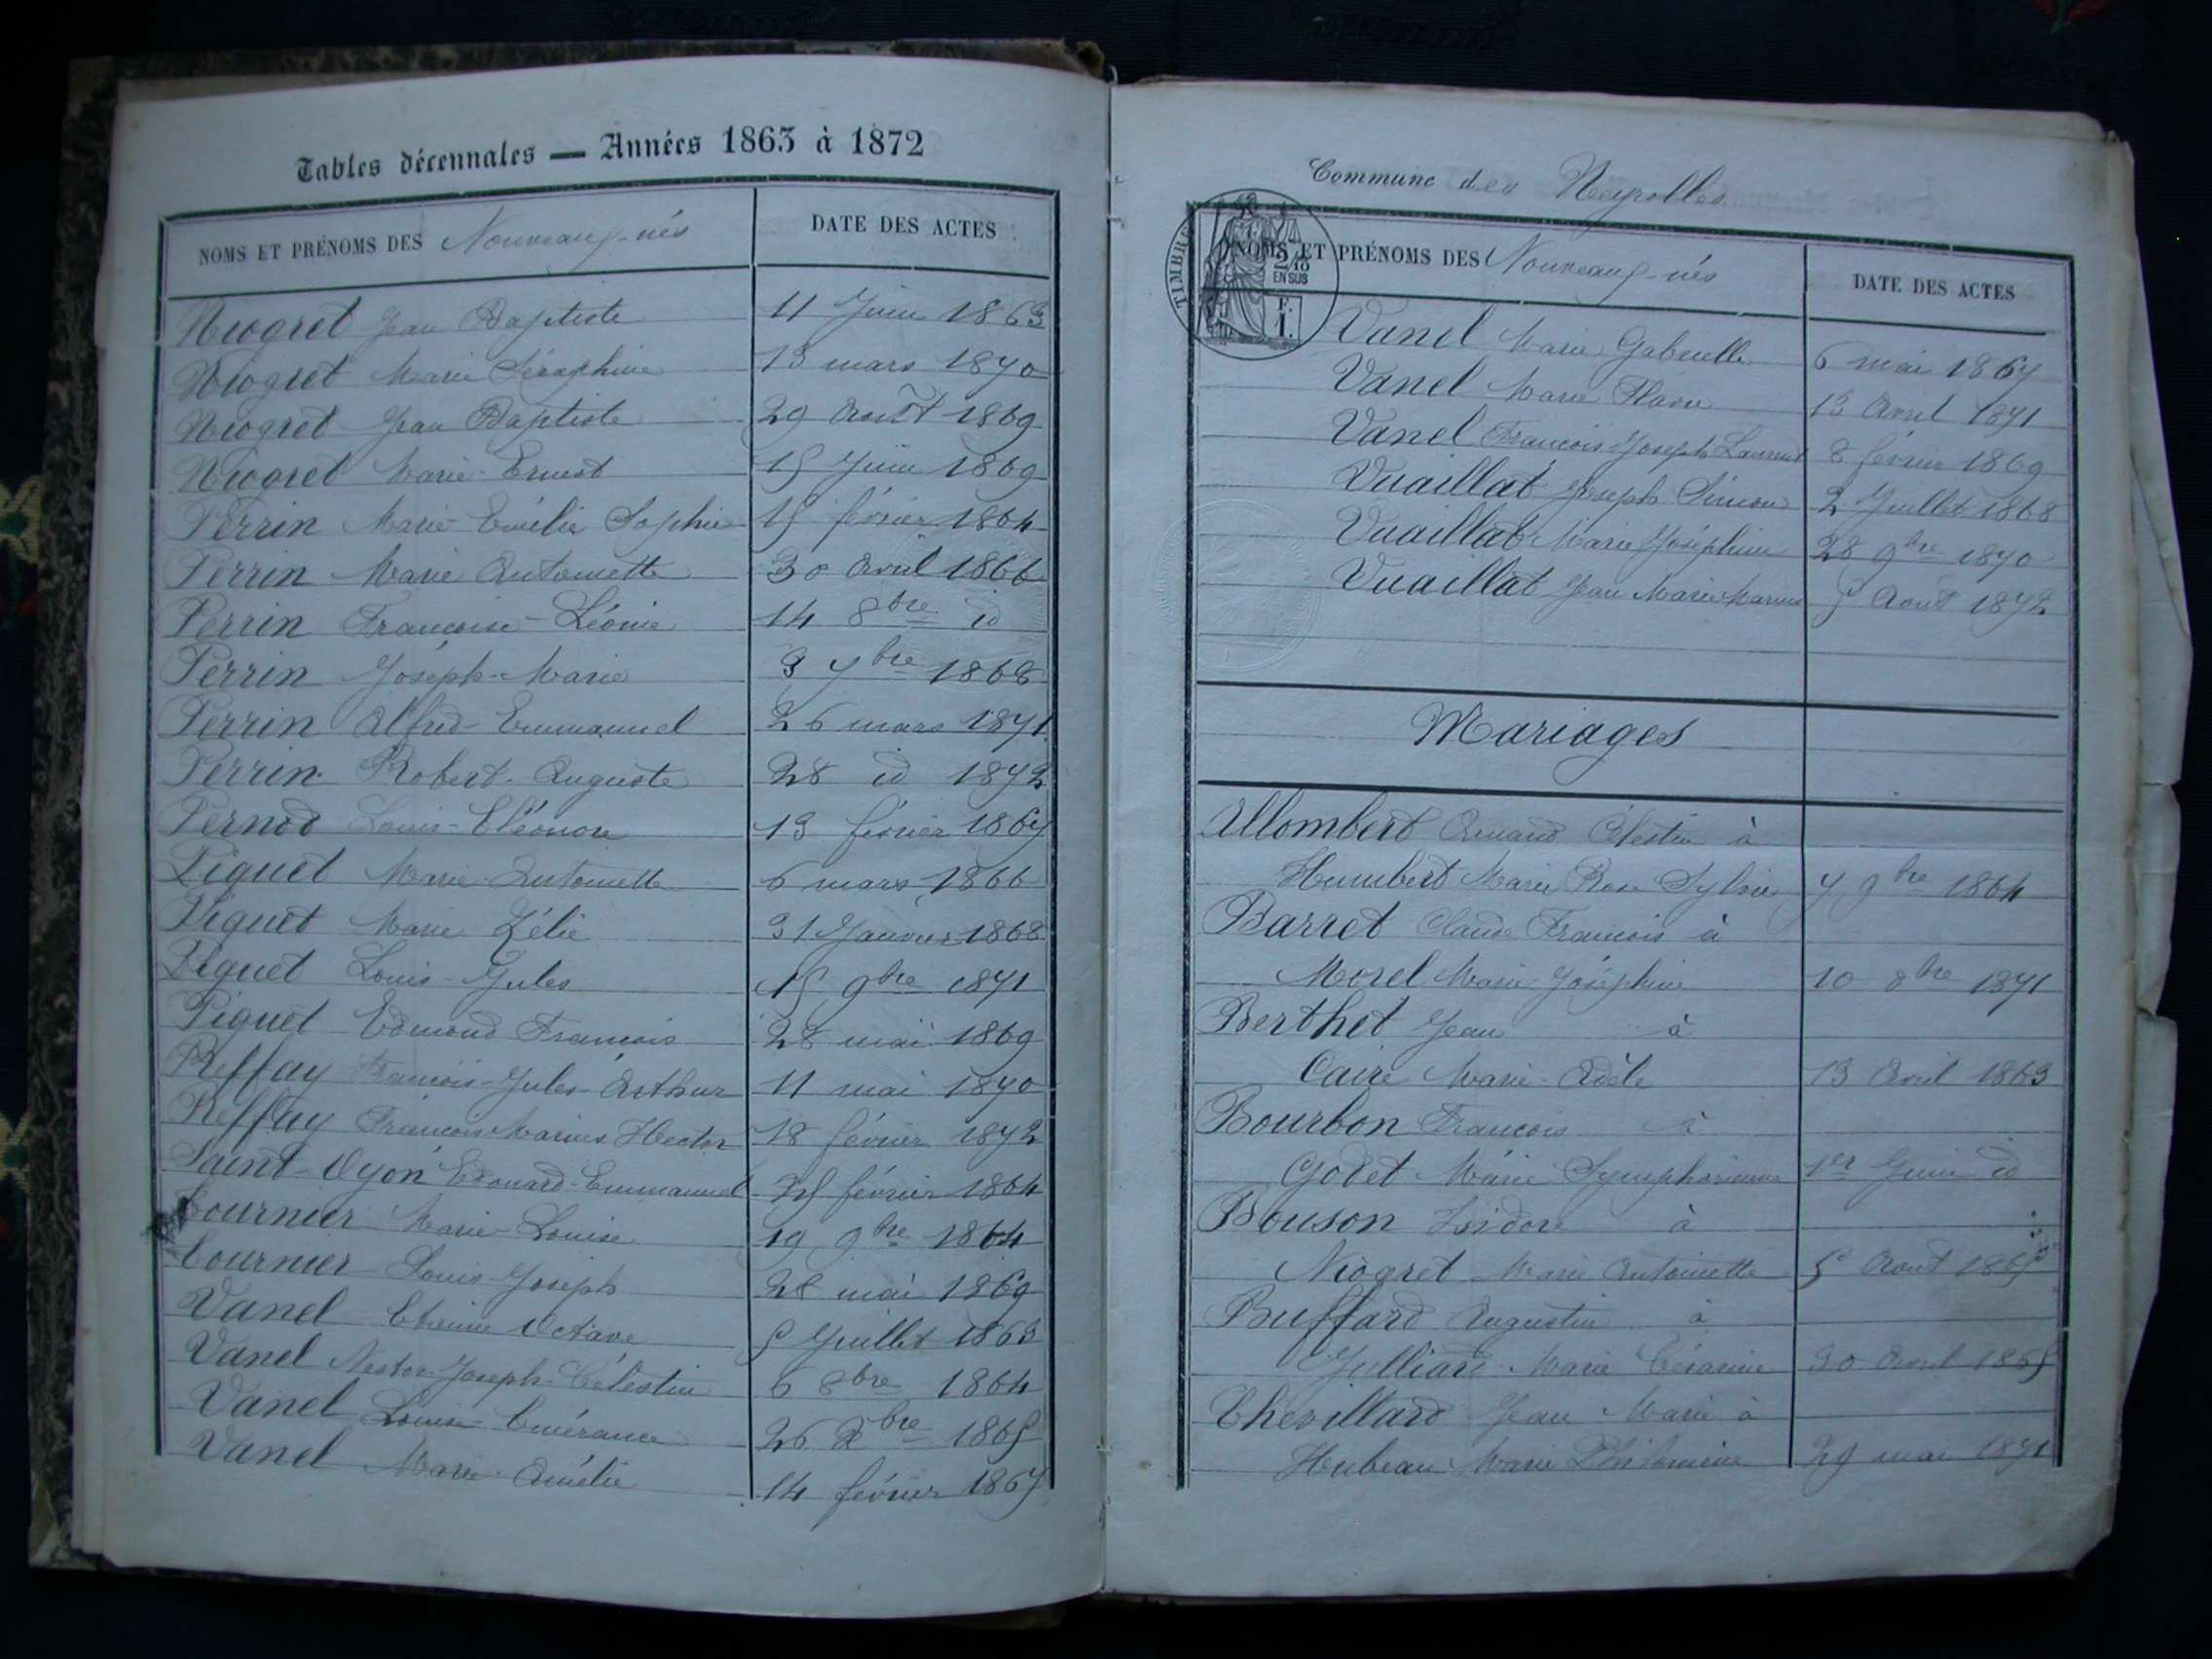 Tables décennales — Années 1863 à 1872
NOMS ET PRÉNOMS DES Nouveaux-nés DATE DES ACTES
Niogret Jean Baptiste 11 Juin 1863
Niogret Marie Séraphine 13 mars 1870
Niogret Jean Baptiste 29 Août 1869
Niogret Marie Ernest 15 Juin 1869
Perrin Marie Emélie Sophie 15 février 1864
Perrin Marie Antoinette 30 Avril 1866
Perrin Françoise-Léonie 14 8bre id
Perrin Joseph-Marie 3 7bre 1868
Perrin Alfred-Emmanuel 26 mars 1871
Perrin Robert-Auguste 28 id 1872
Pernod Louis-Eléonore 13 février 1867
Piquet Marie Antoinette 6 mars 1866
Piquet Marie Zélie 31 Janvier 1868
Piquet Louis-Jules 15 9bre 1871
Piquet Edmond François 28 mai 1869
Reffay François-Jules-Arthur 11 mai 1870
Reffay François Marius Hector 18 février 1872
Saint-Oyon Edouard-Emmanuel 25 février 1864
Tournier Marie-Louise 19 9bre 1864
Tournier Louis-Joseph 28 mai 1869
Vanel Etienne Octave 5 Juillet 1863
Vanel Nestor-Joseph-Célestin 6 8bre 1864
Vanel Louise 26 Xbre 1865
Vanel Marie-Amélie 14 février 1867
Commune des Neyrolles
TIMBRE 2/10 EN SUS F. 1.
NOMS ET PRÉNOMS DES Nouveaux-nés DATE DES ACTES
Vanel Marie Gabrielle 6 mai 1867
Vanel Marie Flavie 13 Avril 1871
Vanel François-Joseph Laurent 8 février 1869
Vuaillat Joseph Simon 2 Juillet 1868
Vuaillat Marie Joséphine 28 9bre 1870
Vuaillat Jean Marie Marius 5 Août 1872
Mariages
Allombert Armand Célestin à
Humbert Marie Rose Sylvie 7 9bre 1864
Barret Claude François à
Morel Marie Joséphine 10 8bre 1871
Berthet Jean à
Caire Marie-Adèle 13 Avril 1863
Bourbon François à
Godet Marie Symphorienne 1er Juin id
Bouson Isidore à
Niogret Marie Antoinette 5 Août
Buffard Augustin à
Julliard Marie Césarine 30 Avril 1865
Chevillard Jean Marie à
Hubeau Marie Philomène 29 mai 1871